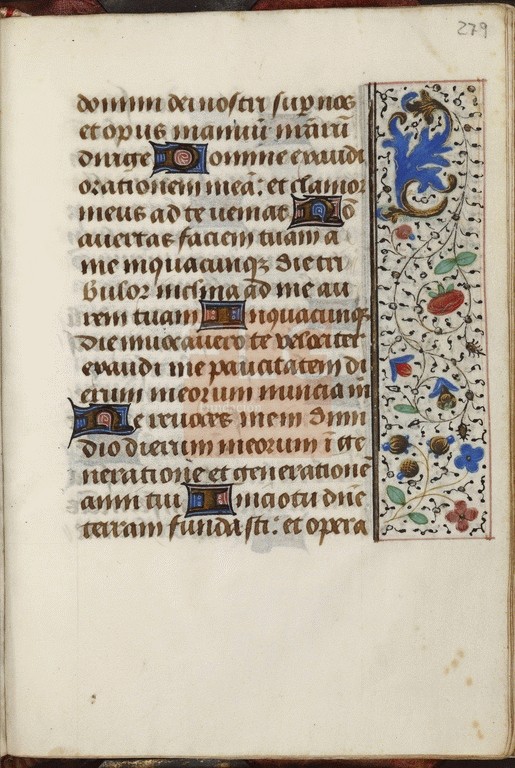 279
domini dei nostri sup nos
et opus manuū nr̄arū
dirige Domine exaudi
orationem meā: et clamor
meus ad te veniat Nō
avertas faciem tuam a
me inquacunqꝫ die tri
bulor inclina ad me au
rem tuam Inquacunqꝫ
die invocavero te velociter
exaudi me paucitatem di
erum meorum nuncia m̄
Ne revoces mem dimi
dio dierum meorum ī ge
neratione et generatione
anni tui Inicio tu dn̄e
terram fundasti: et opera